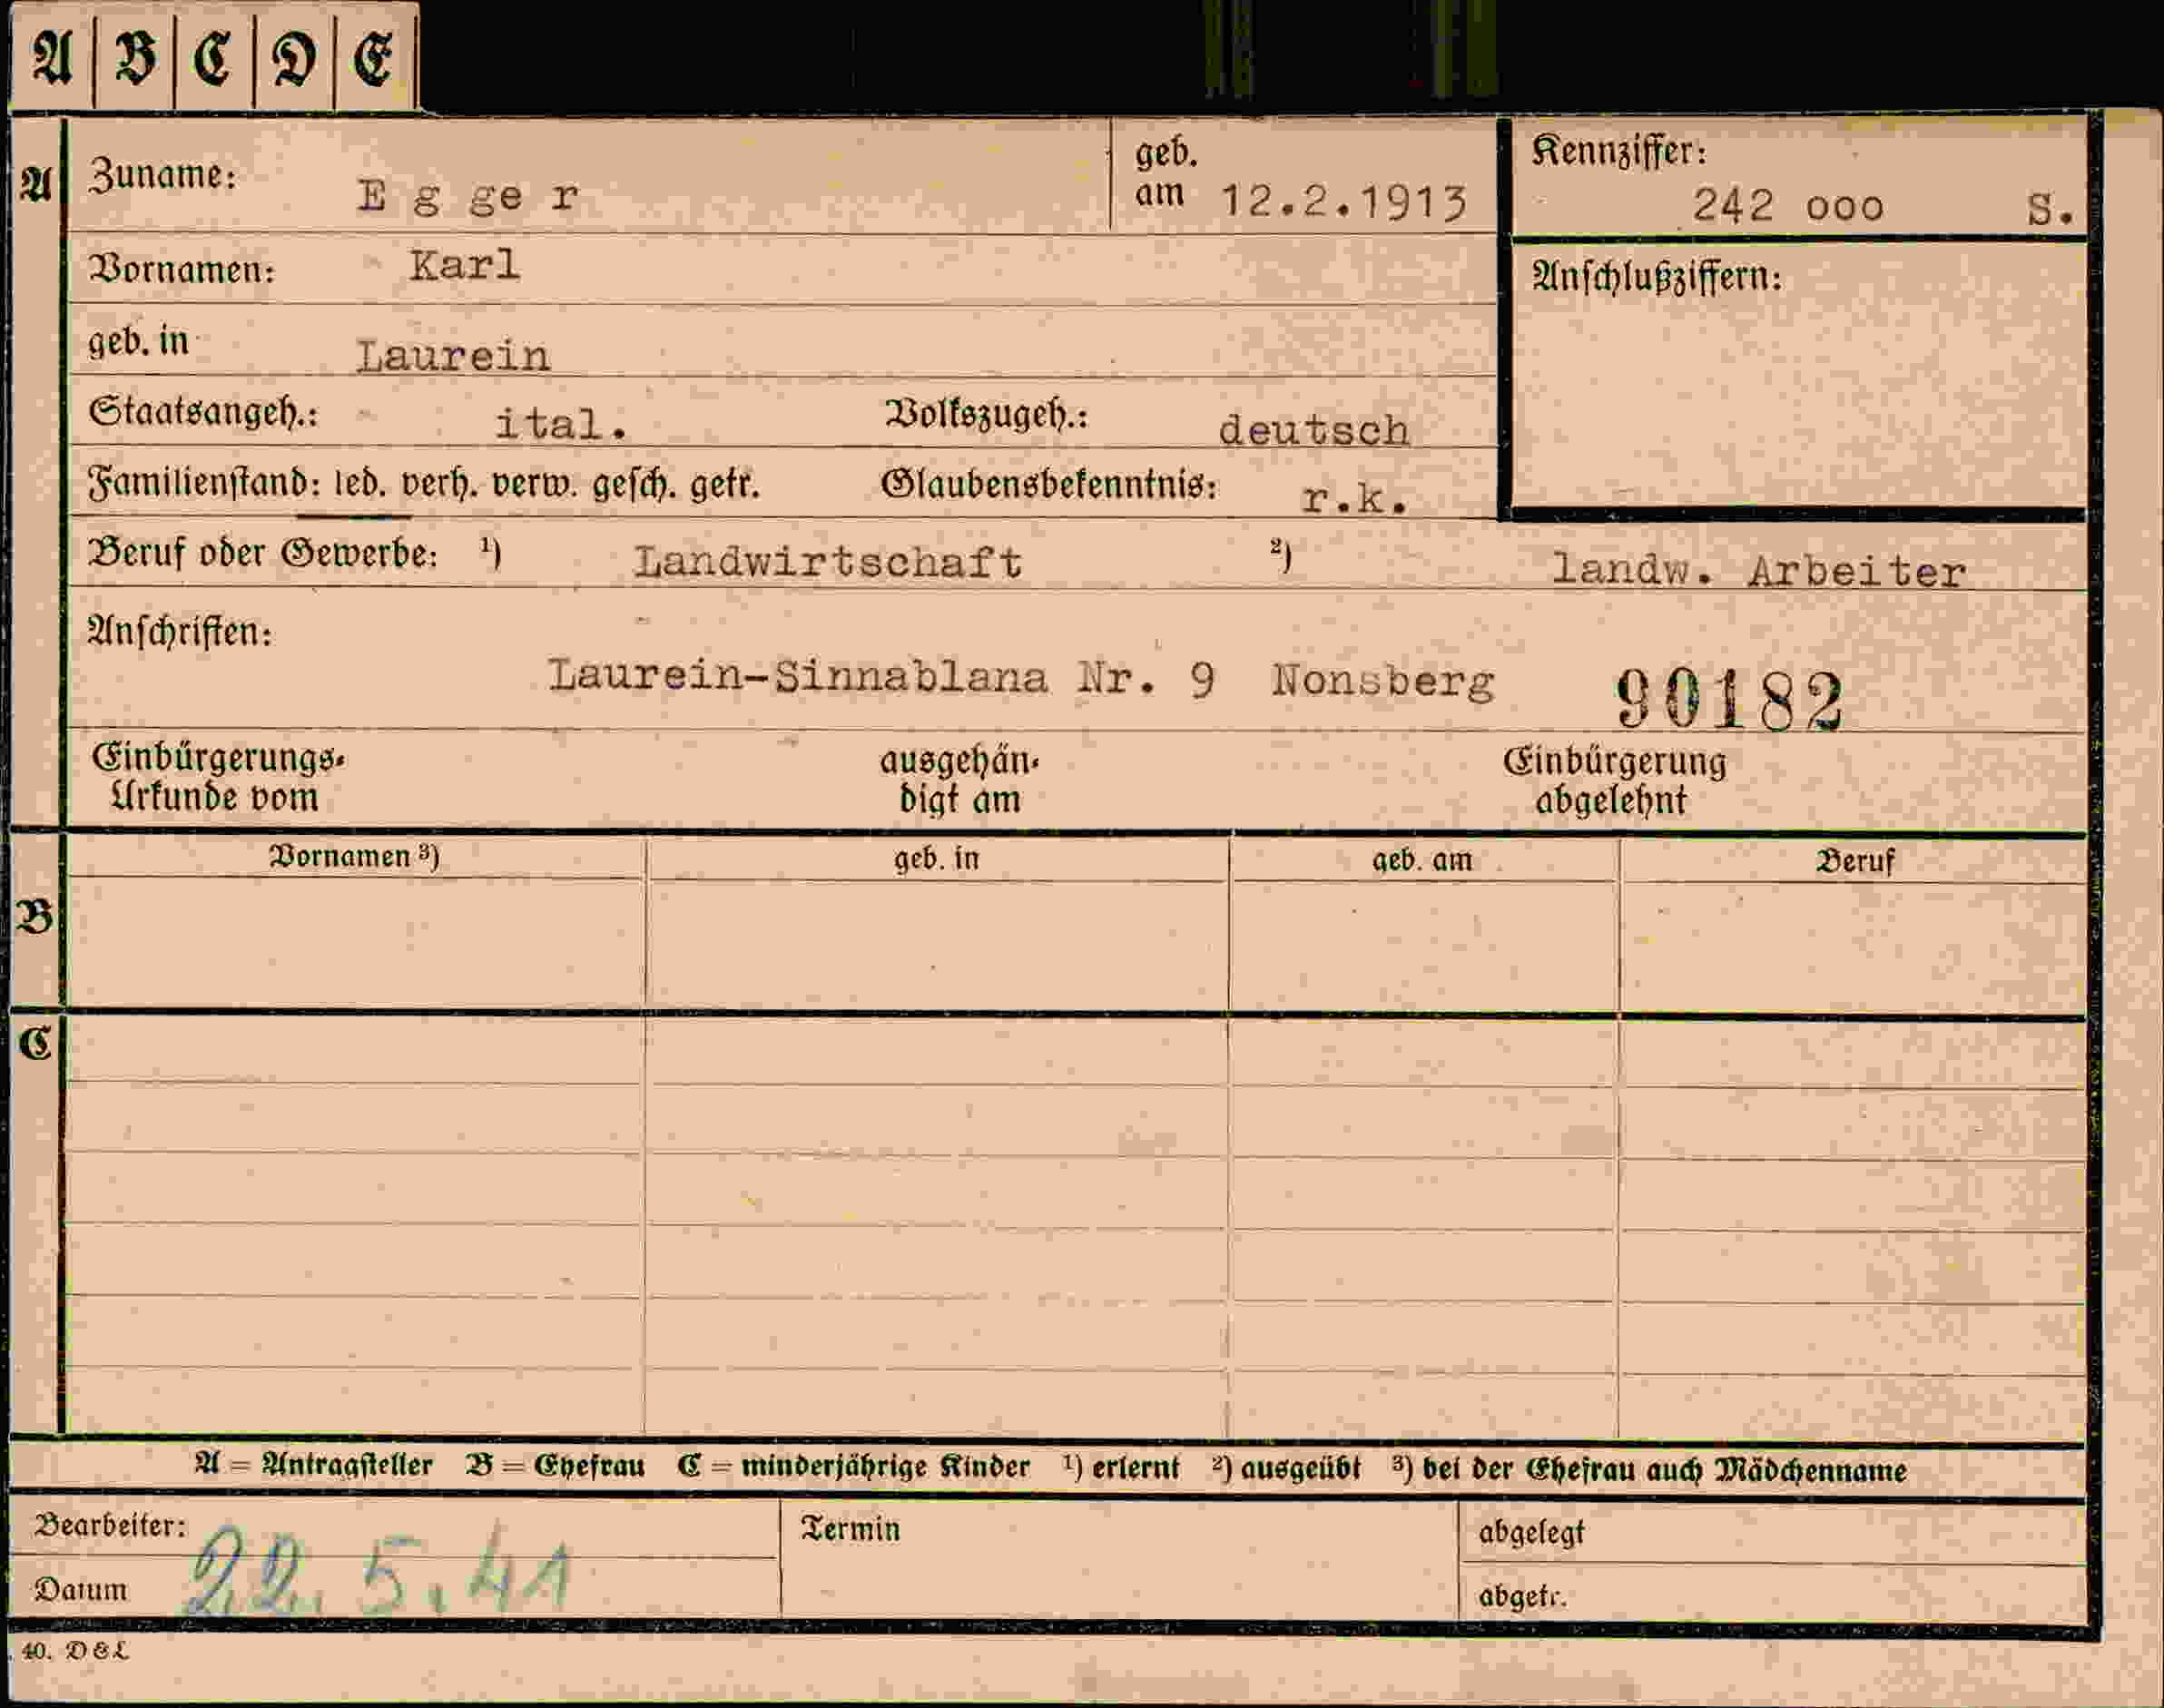 A B C D E
A Zuname: E g ge r geb. am 12.2.1913 Kennziffer: 242 000 S.
Vornamen: Karl Anschlußziffern:
geb. in Laurein
Staatsangeh.: ital. Volkszugeh.: deutsch
Familienstand: led. verh. verw. gesch. getr. Glaubensbekenntnis: r.k.
Beruf oder Gewerbe: ¹) Landwirtschaft ²) landw. Arbeiter
Anschriften:
Laurein-Sinnablana Nr. 9 Nonsberg 90182
Einbürgerungs- ausgehän- Einbürgerung
Urkunde vom digt am abgelehnt
Vornamen ³) geb. in geb. am Beruf
B
C
A = Antragsteller B = Ehefrau C = minderjährige Kinder ¹) erlernt ²) ausgeübt ³) bei der Ehefrau auch Mädchenname
Bearbeiter: Termin abgelegt
Datum 22.5.41 abgetr.
40. D&L